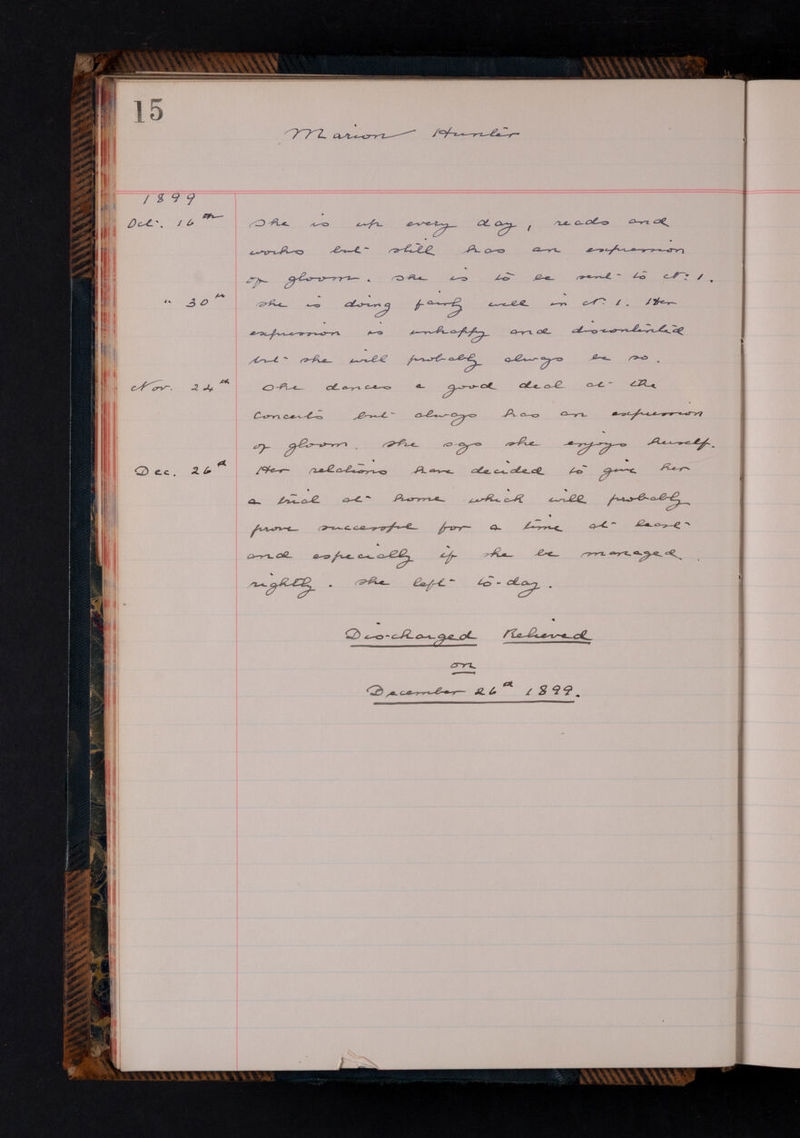 15
Marion Hunter
1899
Oct. 16th She is up every day, reads and
works but still has an expression
of gloom. She is to be sent to No. 1.
" 30th She is doing fairly well in No. 1. Her
expression is unhappy and discontented
but she will probably always be so.
Nov. 24th She dances a good deal at the
Concerts but always has an expression
of gloom. She says she enjoys herself.
Dec. 26th Her relations have decided to give her
a trial at home which will probably
prove successful for a time at least
and especially if she be managed
rightly. She left to-day.
Discharged Relieved
on
December 26th 1899.